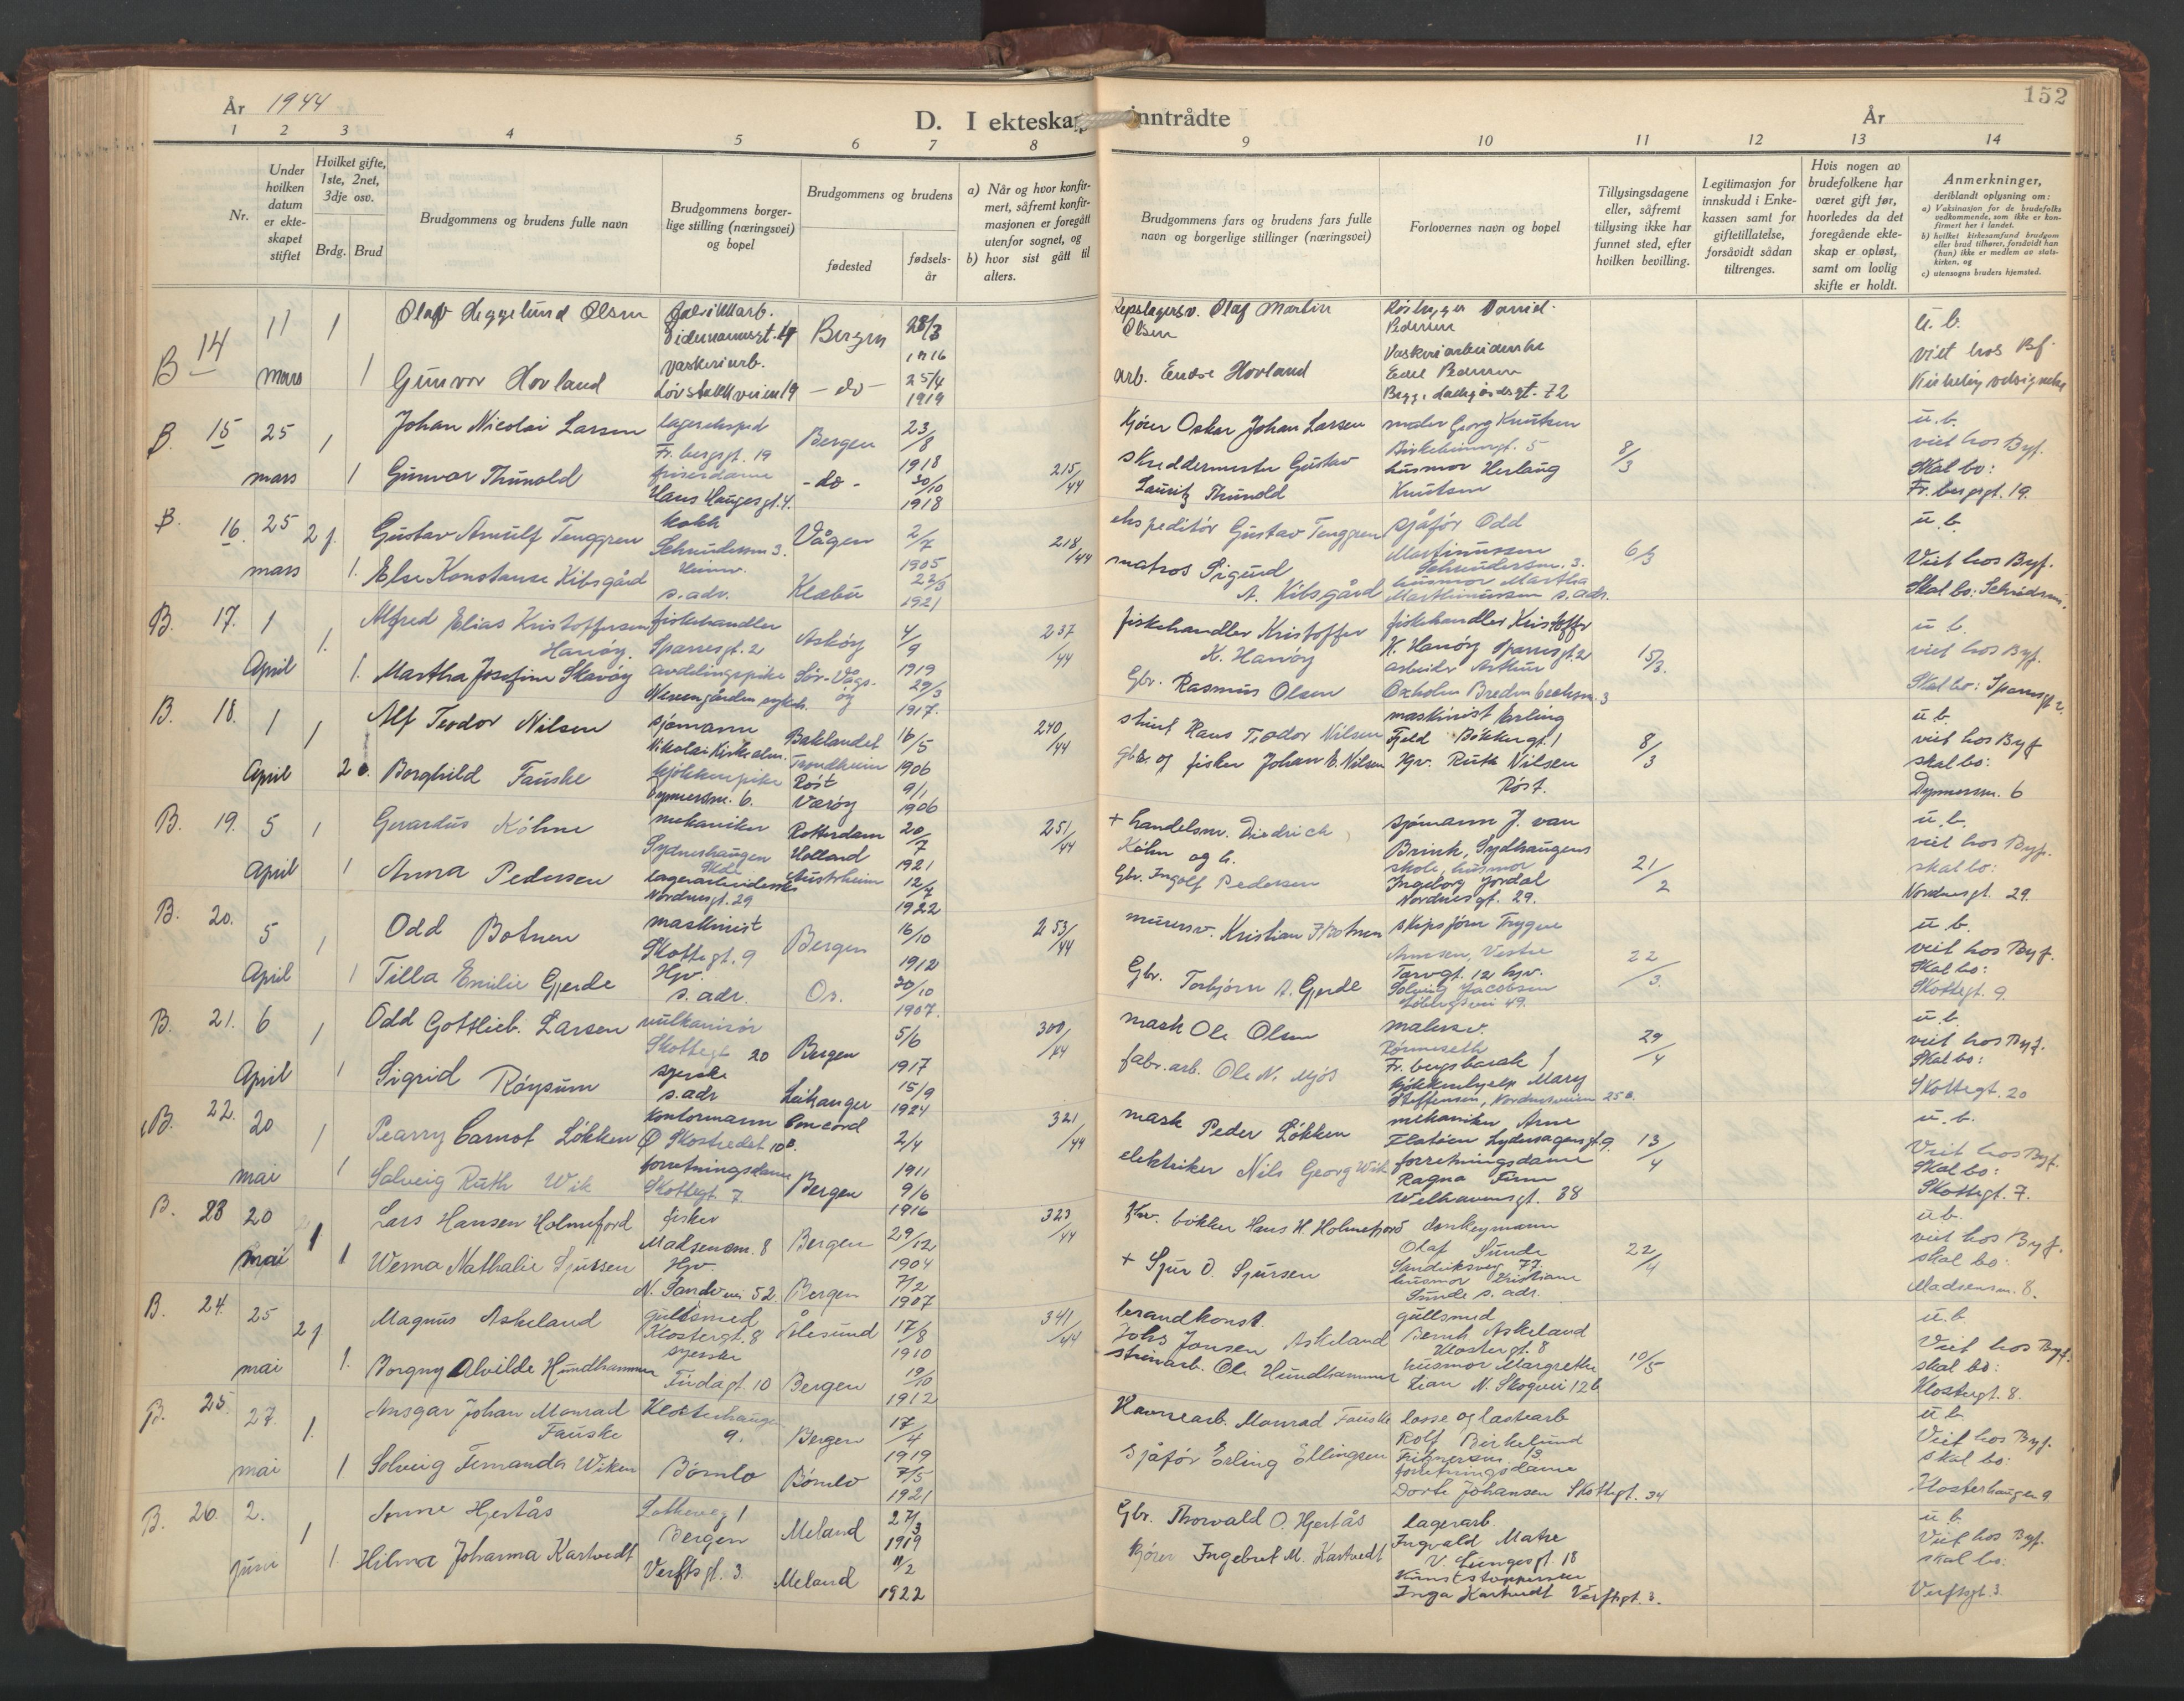 År 1944
D. I ekteskap inntrådte
År
152
1 2 3 4 5 6 7 8 9 10 11 12 13 14
Nr.
Under hvilken datum er ekteskapet stiftet
Hvilket gifte, 1ste, 2net, 3dje osv.
Brdg. Brud
Brudgommens og brudens fulle navn
Brudgommens borgerlige stilling (næringsvei) og bopel
Brudgommens og brudens
fødested
fødselsår
a) Når og hvor konfirmert, såfremt konfirmasjonen er foregått utenfor sognet, og
b) hvor sist gått til alters.
Brudgommens fars og brudens fars fulle navn og borgerlige stillinger (næringsvei)
Forlovernes navn og bopel
Tillysingsdagene eller, såfremt tillysing ikke har funnet sted, efter hvilken bevilling.
Legitimasjon for innskudd i Enkekassen samt for giftetillatelse, forsåvidt sådan tiltrenges.
Hvis nogen av brudefolkene har været gift før, hvorledes da det foregående ekteskap er opløst, samt om lovlig skifte er holdt.
Anmerkninger, deriblandt oplysning om:
a) Vaksinasjon for de brudefolks vedkommende, som ikke er konfirmert her i landet.
b) hvilket kirkesamfund brudgom eller brud tilhører, forsåvidt han (hun) ikke er medlem av statskirken, og
c) utensogns bruders hjemsted.
B 14 11 mars 1 Olav Heggelund Olsen Bergen 28/3 1916 Olaf Martin Olsen Pedersen u.b.
1 Gunvor Hovland vaskeriarb. Løvstakkveien 19 - do - 25/4 1919 arb. Endre Hovland Vaskeriarbeiderske Edel Pedersen 72 viet hos Bf.
B. 15 25 mars 1 Johan Nicolai Larsen lagereksped Fr. bergsgt. 19 Bergen 23/8 1918 Kjører Oskar Johan Larsen maler Georg Knutsen Birkebeinergt. 5 u.b.
1 Gunvor Thunold friserdame Hans Hauges gt. 4. - do - 30/10 1918 215/44 Skreddermester Gustav Lauritz Thunold husmor Herlaug Knutsen 8/3 viet hos Byf. Skal bo: Fr. bergsgt. 19.
B. 16. 25 mars 2 f. Gustav Arnulf Tenggren kokk 3. Vågen 2/7 1905 218/44 ekspeditør Gustav Tenggren sjåfør Odd Martinussen 3. 6/3 u.b.
1. Else Konstanse Kibsgård s. adr. Klæbu 23/3 1921 matros Sigurd A. Kibsgård husmor Martha Marthinussen s. adr. Viet hos Byf. Skal bo:
B. 17. 1 April 1. Alfred Elias Kristoffersen Hanøy. fiskehandler Sparresgt. 2 Askøy 4/9 1919 237/44 fiskehandler Kristoffer K. Hanøy fiskehandler Kristoffer K. Hanøy Sparresgt. 2 15/3. u.b.
1. Martha Josefine Skavøy avdelingspike Sør-Vågsøy 29/3 1917. Gbr. Rasmus Olsen arbeider Arthur 3 viet hos Byf. Skal bo: Sparresgt. 2.
B. 18. 1 April 1 Alf Teodor Nilsen sjømann Baklandet Trondheim 16/5 1906 240/44 Hans Teodor Nilsen maskinist Erling Fjeld Bøkkergt. 1 8/3 u.b.
2 Borghild Fauske kjøkkenpike 6. Røst Værøy 9/1 1906 gbr. og fisker Johan E. Nilsen Hjv. Ruth Nilsen Røst. viet hos Byf skal bo: 6
B. 19. 5 April 1 Gerardus Köhne mekaniker Sydneshaugen Skole Rotterdam Holland 20/7 1921 251/44 + handelsm. Diedrich Köhn og h. sjømann J. van Brink, Sydhaugens skole, husmor u.b.
1 Anna Pedersen lagerarbeiderske Nordnesgt. 29 Austrheim 12/7 1922 Gbr. Ingolf Pedersen Ingeborg Jordal Nordnesgt. 29. 21/2 viet hos Byf. skal bo: Nordnesgt. 29.
B. 20. 5 April 1 Odd Botnen maskinist Skottegt. 9 Bergen 16/10 1912 253/44 murersv. Kristian Botnen skipsfører Trygve Vestre Torvgt. 12 hjv. 22/3. u.b.
1 Tilla Emilie Gjerde Hjv. s. adr. Os. 30/10 1907. Gbr. Torbjørn A. Gjerde Solveig Jacobsen 49. viet hos Byf. Skal bo: Skottegt. 9.
B. 21. 6 April 1 Odd Gottlieb. Larsen vulkanisør Skottegt 20 Bergen 5/6 1917 300/44 mask Ole Olsen malersv. Fr. bergsbarak 1 29/4 u.b.
1 Sigrid Røysum syerske s. adr Leikanger 15/9 1924 fabr. arb. Ole N. Mjøs kjøkkenhjelp Mary Steffensen, Nordnesveien 25 B. viet hos Byf. Skal bo: Skottegt. 20
B. 22. 20 mai 1 Pearry Carnot Løkken kontormann Ø Skostredet 10 B. Concord 2/4 1911 321/44 mask Peder Løkken mekaniker Arne Lydersagensgt. 9. 13/4 u.b.
1 Solveig Ruth Wik forretningsdame Skottegt 7 Bergen 9/6 1916 elektriker Nils Georg Wik forretningsdame Ragna Welhavensgt. 38 Viet hos Byf. Skal bo: Skottegt. 7.
B. 23 20 mai 1 Lars Hansen Holmefjord fisker Madsensm. 8 Bergen 29/12 1904 323/44 bøkker Hans H. Holmefjord donkeymann Olaf Sunde 77. 22/4 u.b.
1 Werna Nathalie Sjursen Hjv. N. Sandv. vei 52 Bergen 7/2 1907 + Sjur O. Sjursen husmor Kristiane Sunde s. adr. viet hos Byf. skal bo: Madsensm. 8.
B. 24. 25 mai 2 f Magnus Askeland gullsmed Klostergt. 8 Ålesund 17/8 1910 341/44 brandkonst. Johs Jonsen Askeland gullsmed Bernh. Askeland Klostergt. 8 u.b.
1. Borgny Alvilde Hundhammer syerske 10 Bergen 19/10 1912 steinarb. Ole Hundhammer husmor Margrethe Lian N. Skogvei 12 b 10/5 Viet hos Byf. skal bo: Klostergt. 8.
B. 25. 27. mai 1. Ansgar Johan Monrad Fauske Klosterhaugen 9. Bergen 17/4 1919 Havnearb. Monrad Fauske losse og lastearb Rolf Birkelund 13 u.b.
1 Solveig Fernanda Wiken Bømlo Bømlo 7/5 1921 Sjåfør Erling Ellingsen forretningsdame Dorte Johansen Skottegt. 34 Viet hos Byf. skal bo: Klosterhaugen 9
B. 26. 2. Juni 1 Arne Hjertås 1 Bergen Meland 27/3 1919 Gbr. Thorvald O. Hjertås lagerarb. Ingvald Matre V. Lungesgt. 18 u.b.
1. Hilma Johanna Kartvedt Verftsgt. 3. Meland 11/2 1922 Kjører Ingebret M. Kartvedt Kunststopperske Inga Kartvedt Verftsgt. 3. Viet hos Byf. skal bo: Verftsgt. 3.